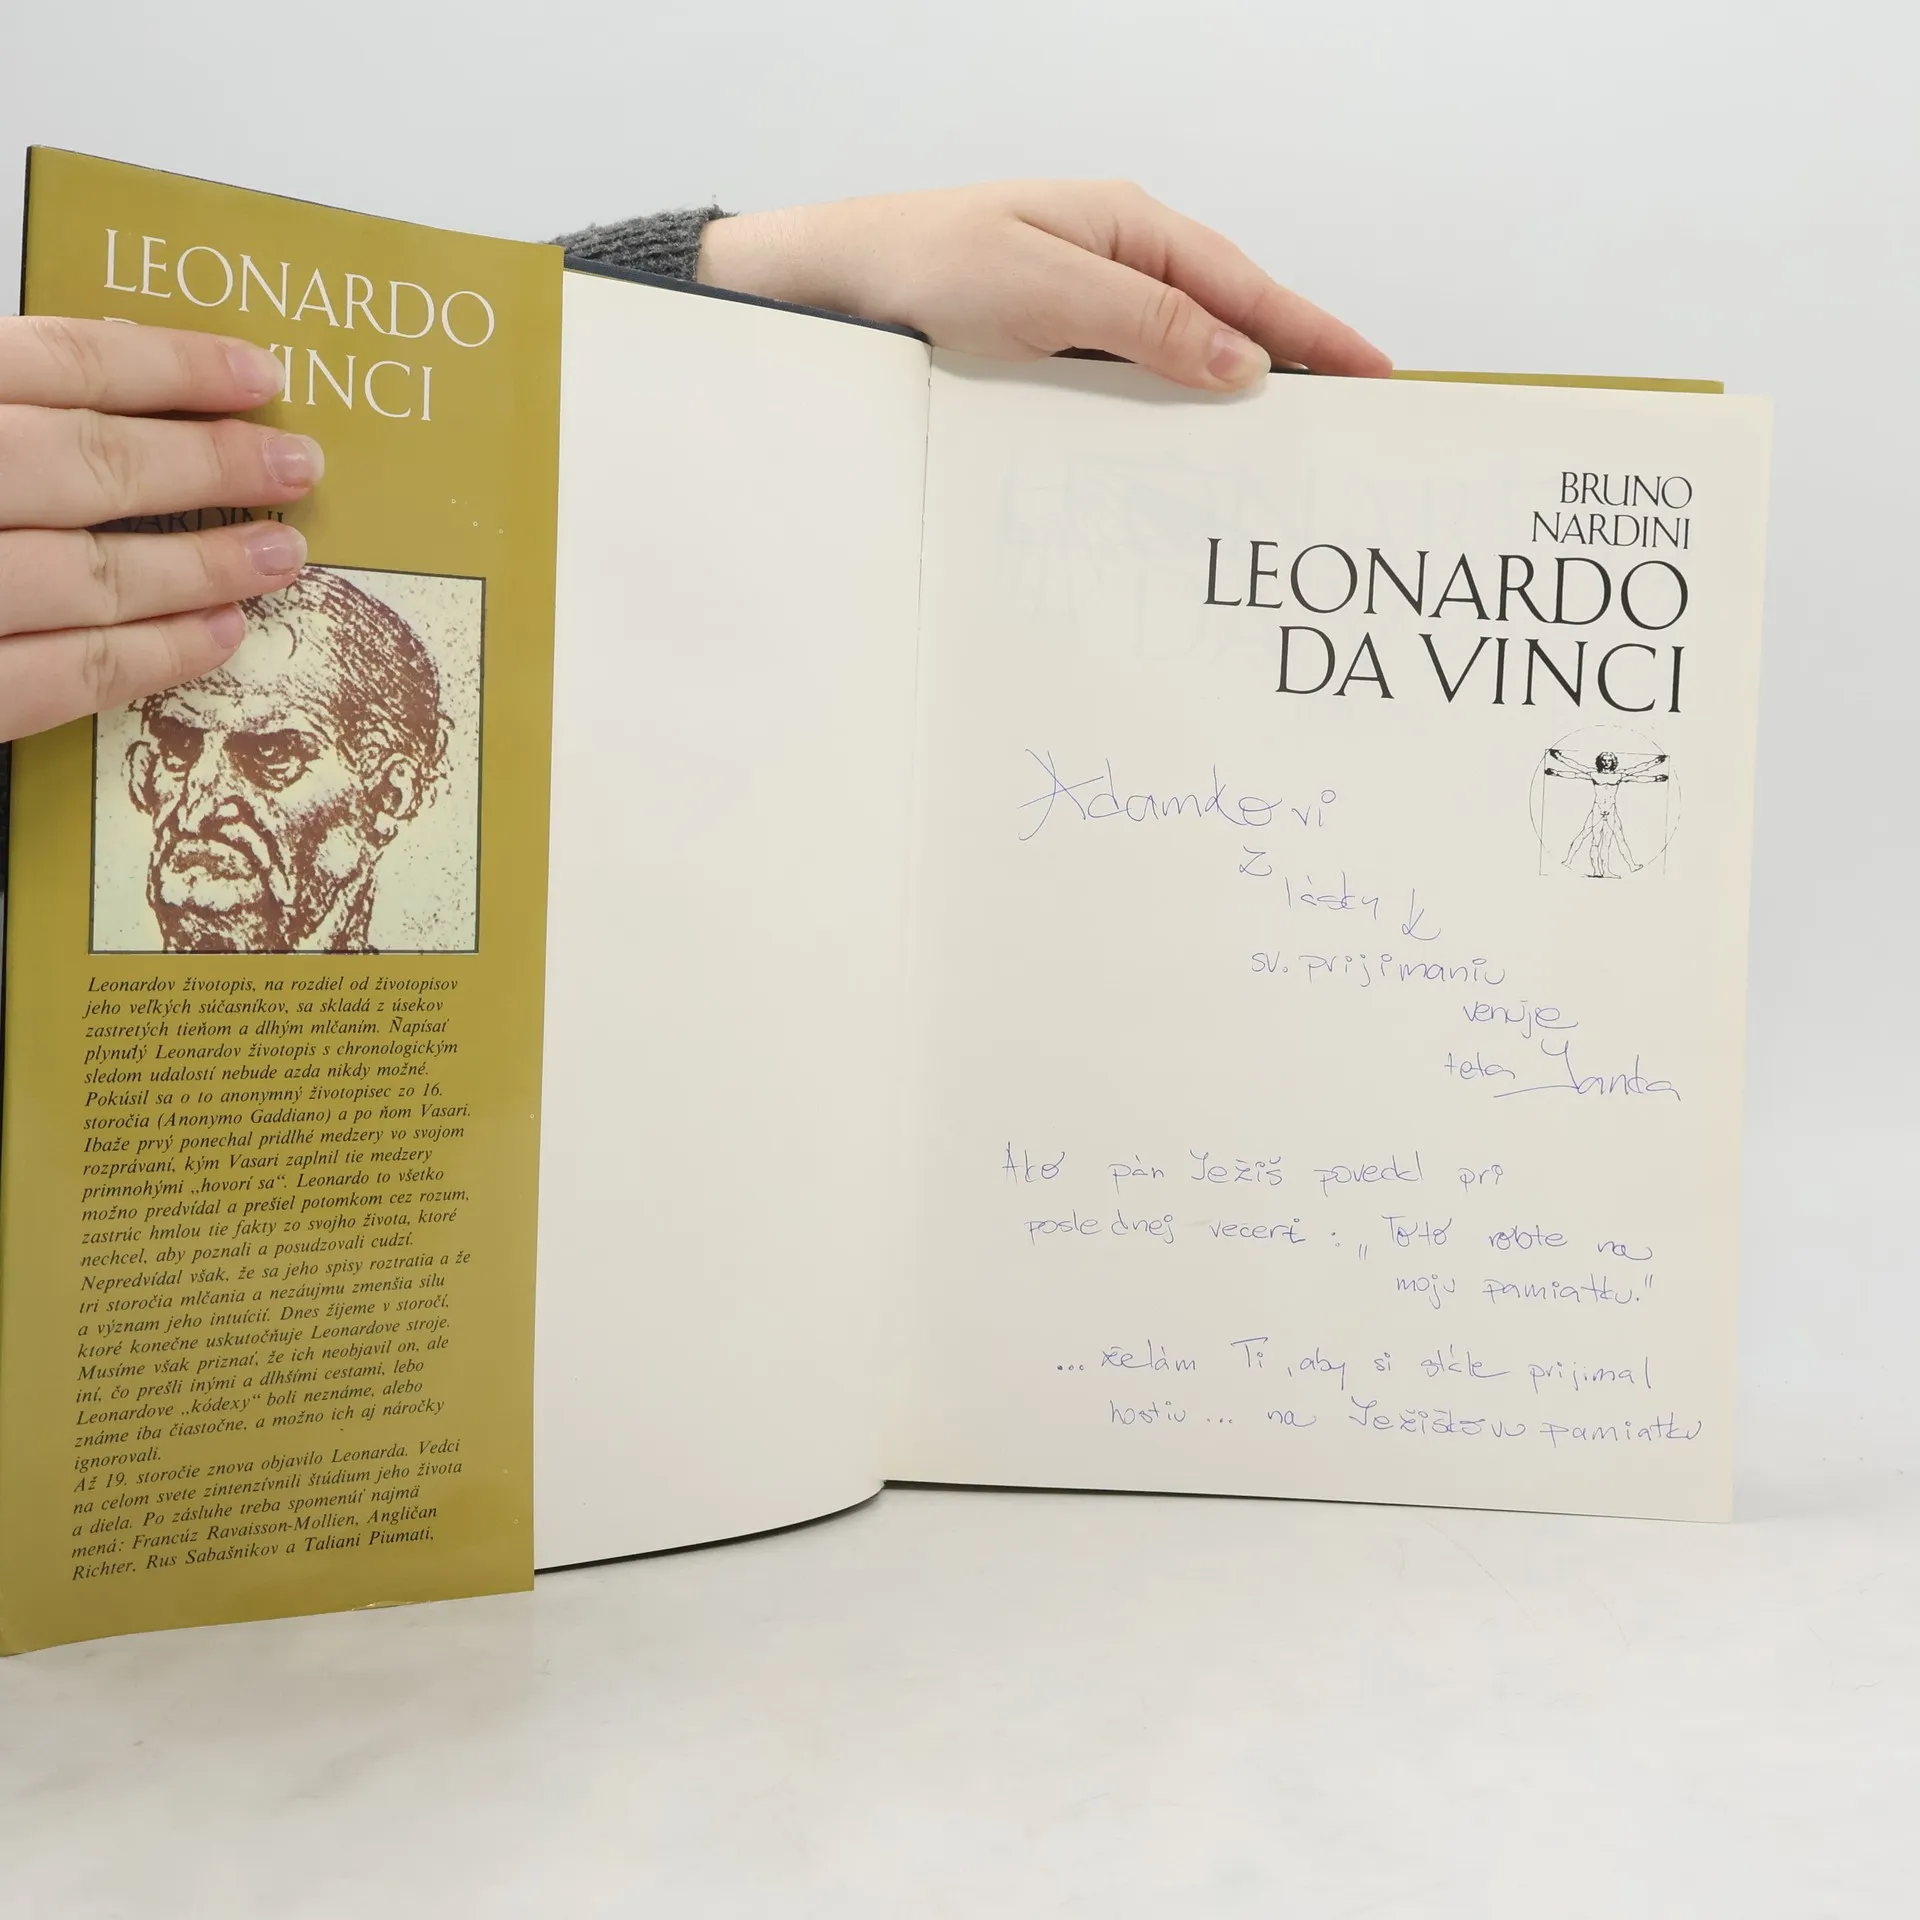 LEONARDO
VINCI
NARDINI
Leonardov životopis, na rozdiel od životopisov
jeho veľkých súčasníkov, sa skladá z úsekov
zastretých tieňom a dlhým mlčaním. Napísať
plynulý Leonardov životopis s chronologickým
sledom udalostí nebude azda nikdy možné.
Pokúsil sa o to anonymný životopisec zo 16.
storočia (Anonymo Gaddiano) a po ňom Vasari.
Ibaže prvý ponechal pridlhé medzery vo svojom
rozprávaní, kým Vasari zaplnil tie medzery
primnohými „hovorí sa“. Leonardo to všetko
možno predvídal a prešiel potomkom cez rozum,
zastrúc hmlou tie fakty zo svojho života, ktoré
nechcel, aby poznali a posudzovali cudzí.
Nepredvídal však, že sa jeho spisy roztratia a že
tri storočia mlčania a nezáujmu zmenšia silu
a význam jeho intuícií. Dnes žijeme v storočí,
ktoré konečne uskutočňuje Leonardove stroje.
Musíme však priznať, že ich neobjavil on, ale
iní, čo prešli inými a dlhšími cestami, lebo
Leonardove „kódexy“ boli neznáme, alebo
známe iba čiastočne, a možno ich aj náročky
ignorovali.
Až 19. storočie znova objavilo Leonarda. Vedci
na celom svete zintenzívnili štúdium jeho života
a diela. Po zásluhe treba spomenúť najmä
mená: Francúz Ravaisson-Mollien, Angličan
Richter, Rus Sabašnikov a Taliani Piumati,
BRUNO
NARDINI
LEONARDO
DA VINCI
Adamkovi
z
lásky k
sv. prijímaniu
venuje
teta Janka
Ako pán Ježiš povedal pri
poslednej večeri : „Toto robte na
moju pamiatku."
... želám Ti , aby si stále prijímal
hostiu ... na Ježiškovu pamiatku